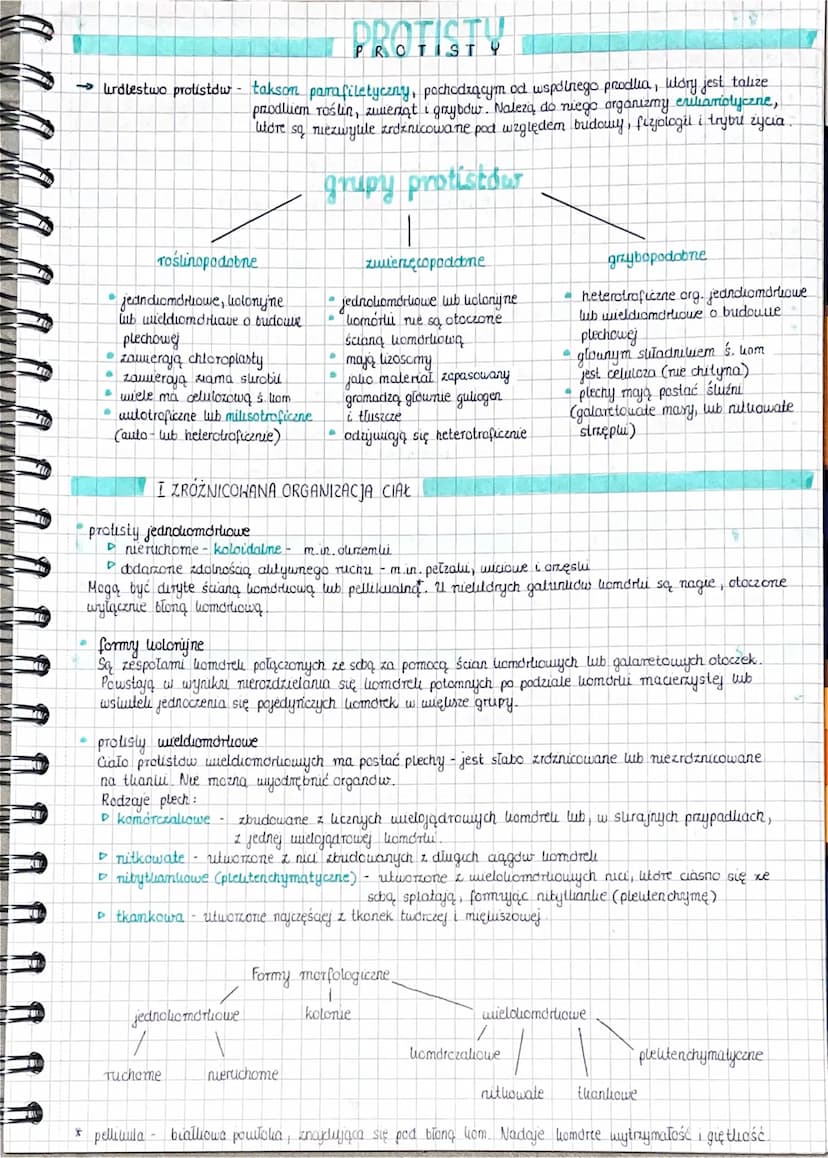 PROTISTY
PROTISTY
→ królestwo protistów - takson parafiletyczny, pochodzącym od wspólnego przodka, który jest także
przodkiem roślin, zwierząt i grzybów. Należą do niego organizmy eukariotyczne,
które są niezwykle zróżnicowane pod względem budowy, fizjologii i trybu życia.
grupy protistów
roślinopodobne
• jednokomórkowe, kolonijne
lub wielokomórkowe o budowie
plechowej
• zawierają chloroplasty
• zawierają ziarna skrobii
• wiele ma celulozową ś. kom
• autotroficzne lub miksotroficzne
(auto- lub heterotroficznie)
zwierzęcopodobne
• jednokomórkowe lub kolonijne
• komórki nie są otoczone
ścianą komórkową
• mają lizosomy
• jako materiał zapasowany
gromadzą głównie glikogen
i tłuszcze
• odżywiają się heterotroficznie
grzybopodobne
• heterotroficzne org. jednokomórkowe
lub wielokomórkowe o budowie
plechowej
• głównym składnikiem ś. kom
jest celuloza (nie chityna)
• plechy mają postać śluźni
(galaretowate masy, lub nitkowate
strzępki)
I ZRÓŻNICOWANA ORGANIZACJA CIAŁ
• protisty jednokomórkowe
▷ nieruchome - koloidalne - m.in. okrzemki
▷ obdarzone zdolnością aktywnego ruchu - m.in. pełzaki, wiciowe i orzęski
Mogą być okryte ścianą komórkową lub pellikulną*. U niektórych gatunków komórki są nagie, otoczone
wyłącznie błoną komórkową.
• formy kolonijne
Są zespołami komórek połączonych ze sobą za pomocą ścian komórkowych lub galaretowych otoczek.
Powstają w wyniku nierozdzielania się komórek potomnych po podziale komórki macierzystej lub
wskutek jednoczenia się pojedyńczych komórek w większe grupy.
• protisty wielokomórkowe
Ciało protistów wielokomórkowych ma postać plechy - jest słabo zróżnicowane lub niezróżnicowane
na tkanki. Nie można wyodrębnić organów.
Rodzaje plech:
▷ komórczakowe - zbudowane z licznych wielojądrowych komórek lub, w skrajnych przypadkach,
z jednej wielojądrowej komórki.
▷ nitkowate - utworzone z nici zbudowanych z długich ciągów komórek
▷ nibytkankowe (plektenchymatyczne) - utworzone z wielokomórkowych nici, które ciasno się ze
sobą splatają, formując nibytkankę (plektenchymę)
▷ tkankowa - utworzone najczęściej z tkanek twórczej i miękiszowej.
Formy morfologiczne
jednokomórkowe kolonie wielokomórkowe
komórczakowe plektenchymatyczne
ruchome nieruchome
nitkowate tkankowe
* pellikula - białkowa powłoka, znajdująca się pod błoną kom. Nadaje komórce wytrzymałość i giętkość.